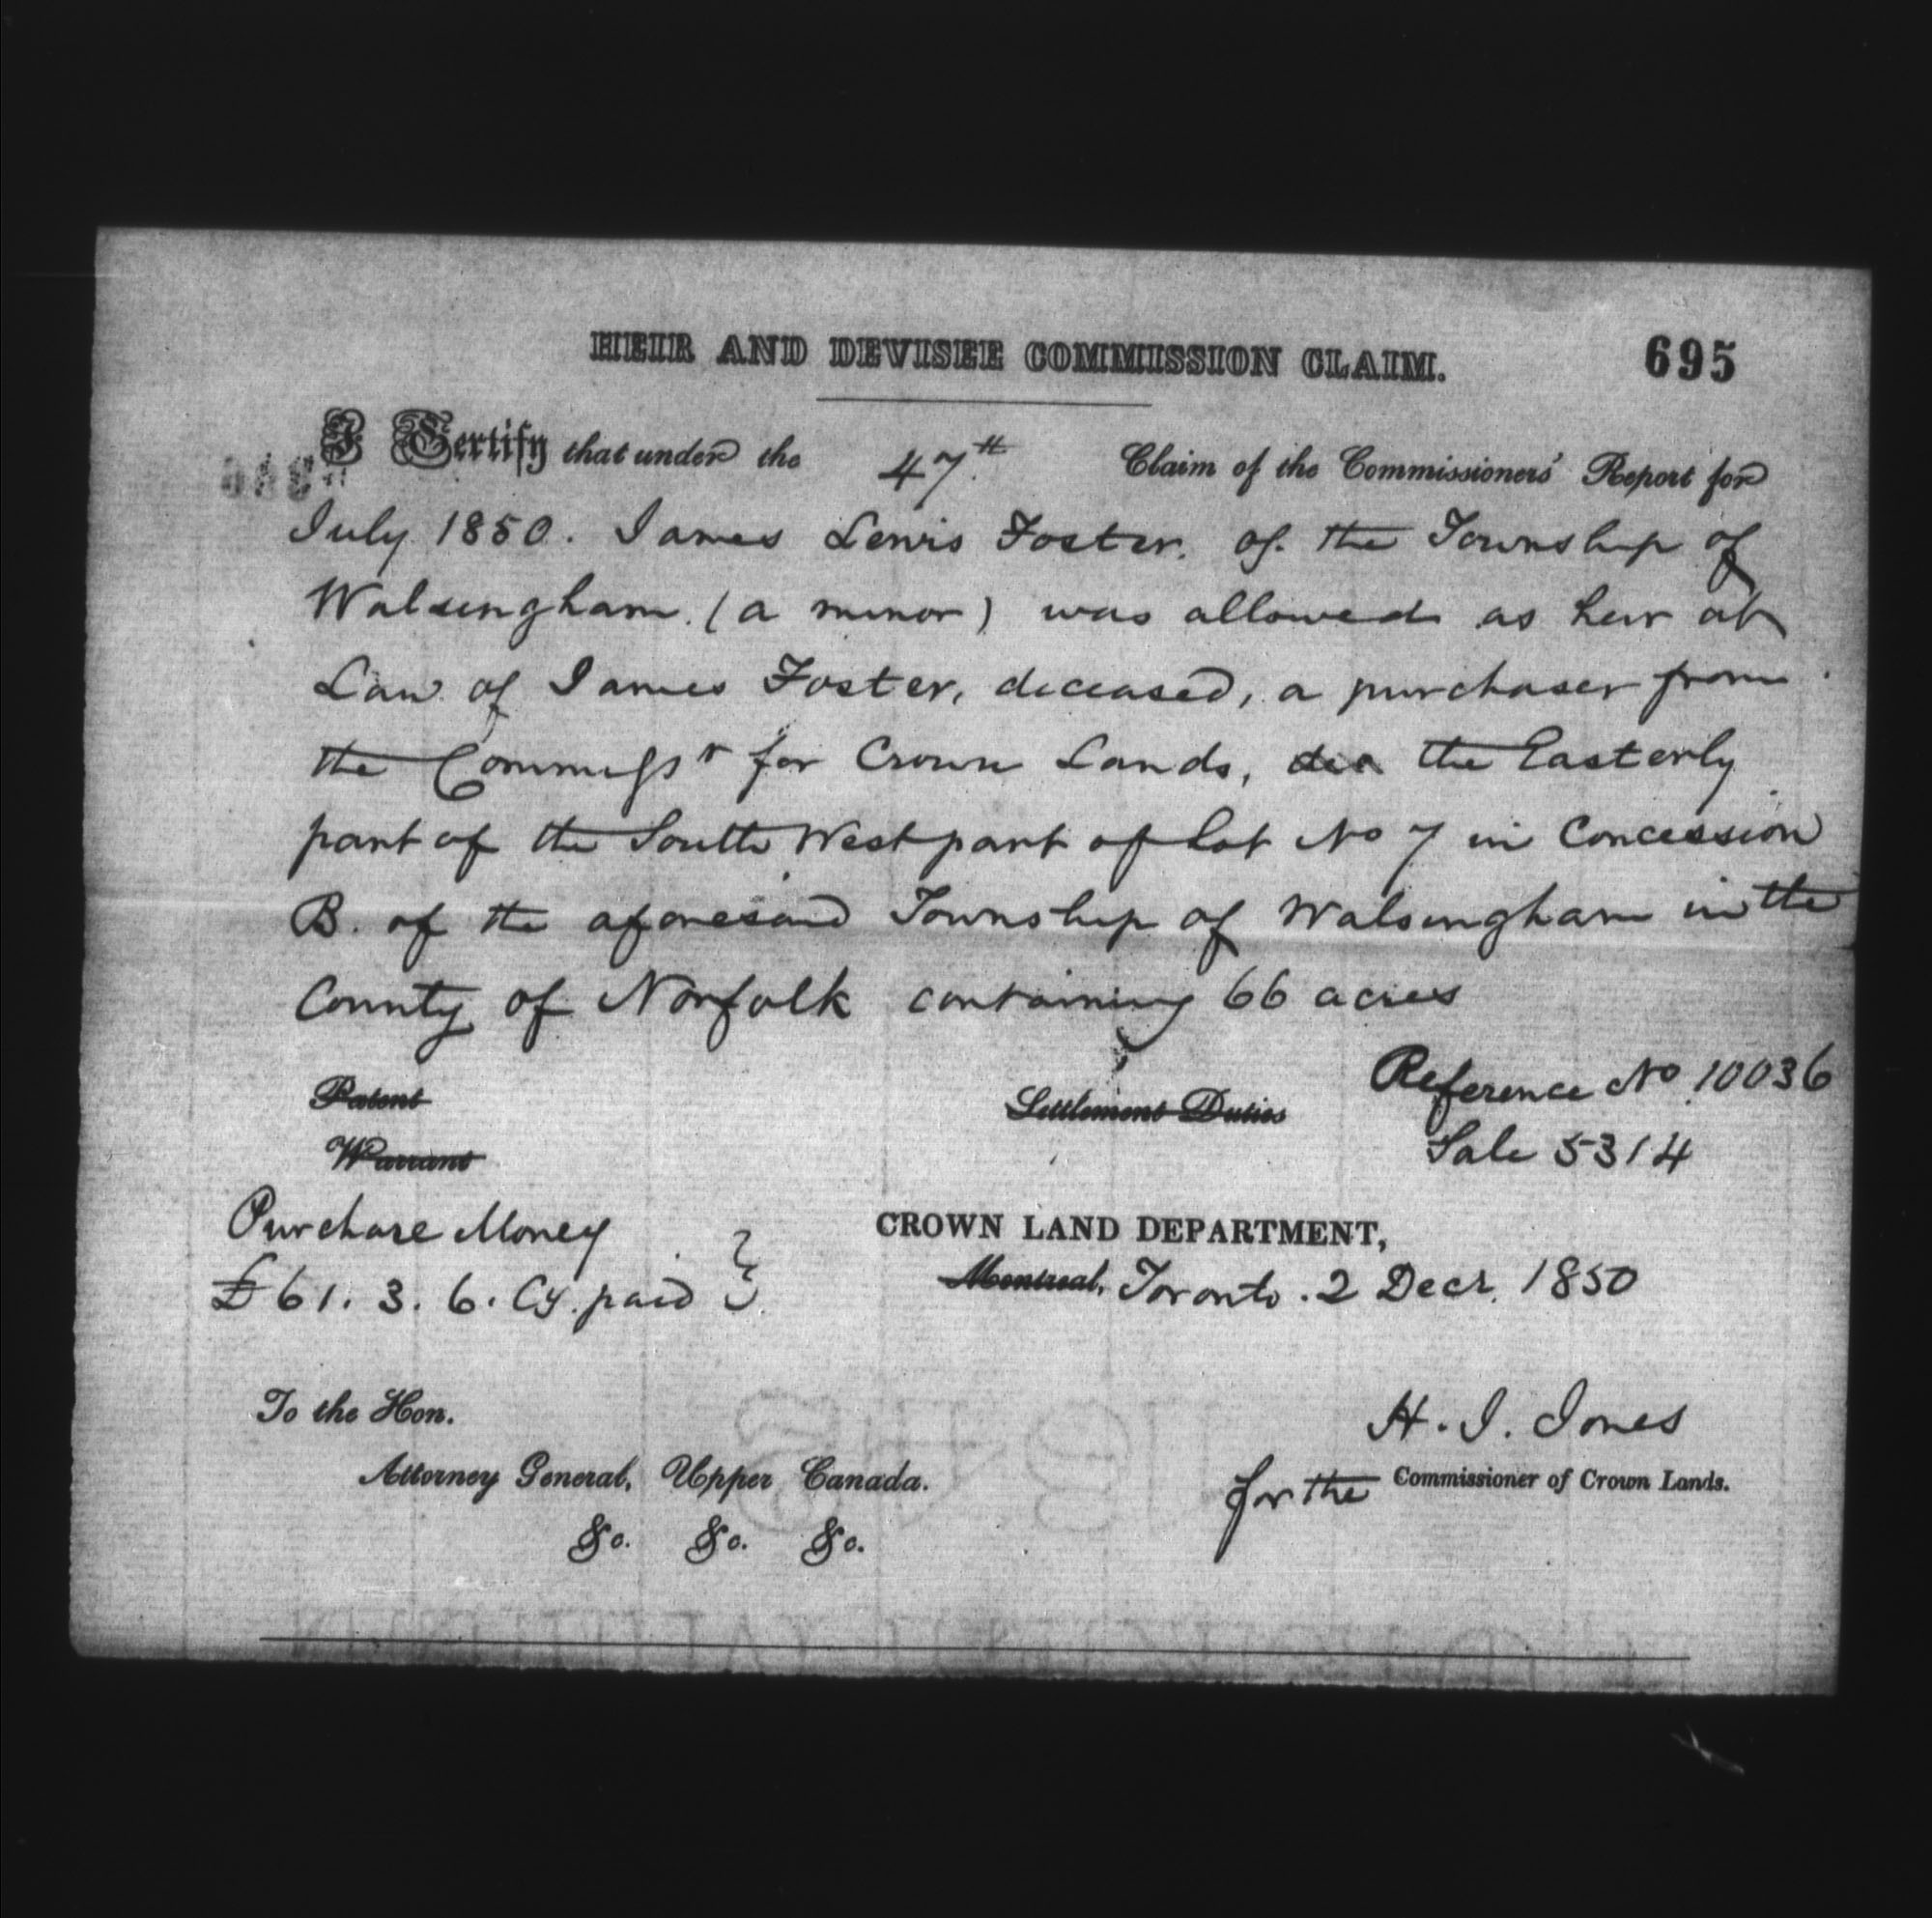 HEIR AND DEVISEE COMMISSION CLAIM. 695
I Certify that under the 47th Claim of the Commissioners' Report for
July 1850. James Lewis Foster. of the Township of
Walsingham. (a minor) was allowed as heir at
Law of James Foster, deceased, a purchaser from
the Commissr for Crown Lands, the Easterly
part of the South West part of Lot No 7 in Concession
B. of the aforesaid Township of Walsingham in the
County of Norfolk containing 66 acres
Patent Settlement Duties Reference No 10036
Warrant Sale 5314
Purchase Money
£61. 3. 6. Cy. paid
CROWN LAND DEPARTMENT,
Montreal, Toronto. 2 Decr. 1850
To the Hon.
Attorney General, Upper Canada.
&c. &c. &c.
H. J. Jones
for the Commissioner of Crown Lands.